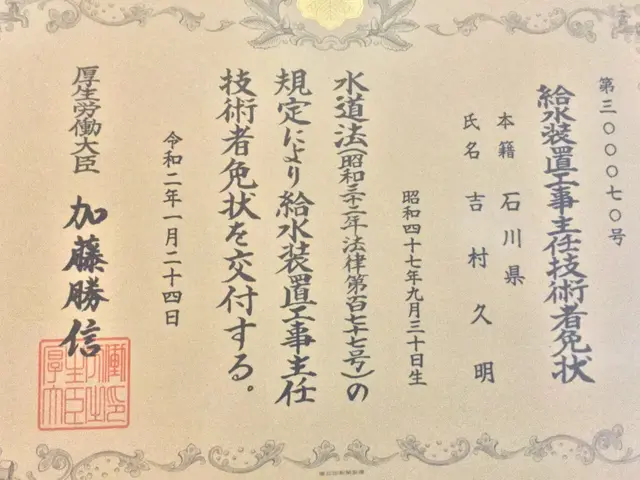 第三〇〇〇七〇号
給水装置工事主任技術者免状
本籍 石川県
氏名 吉村久明
昭和四十七年九月三十日生
水道法(昭和三十二年法律第百七十七号)の
規定により給水装置工事主任
技術者免状を交付する。
令和二年一月二十四日
厚生労働大臣 加藤勝信